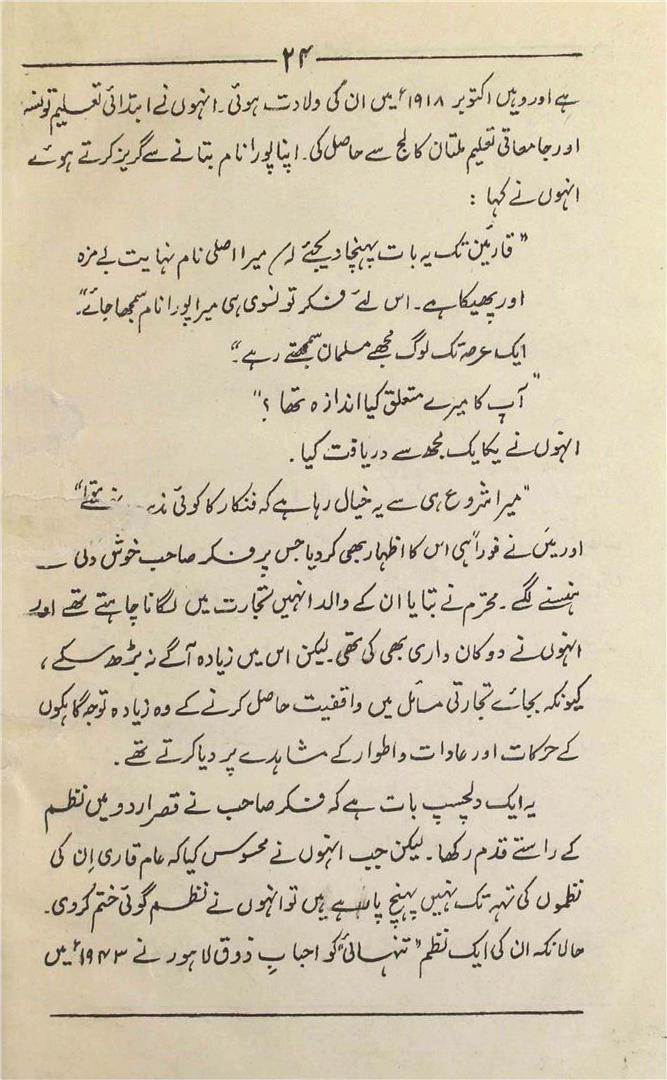 ۲۴
ہے اور وہیں اکتوبر ۱۹۱۸ء میں ان کی ولادت ہوئی۔ انہوں نے ابتدائی تعلیم تونسہ
اور جامعاتی تعلیم ملتان کالج سے حاصل کی۔ اپنا پورا نام بتانے سے گریز کرتے ہوئے
انہوں نے کہا :
"قارئین تک یہ بات پہنچا دیجئے کہ میرا اصلی نام نہایت بے مزہ
اور پھیکا ہے۔ اس لئے فکر تونسوی ہی میرا پورا نام سمجھا جائے"۔
ایک عرصہ تک لوگ مجھے مسلمان سمجھتے رہے۔"
"آپ کا میرے متعلق کیا اندازہ تھا ؟"
انہوں نے یکایک مجھ سے دریافت کیا۔
"میرا شروع ہی سے یہ خیال رہا ہے کہ فنکار کا کوئی
اور میں نے فوراً ہی اس کا اظہار بھی کر دیا جس پر فکر صاحب خوش دلی
ہنسنے لگے۔ محترم نے بتایا ان کے والد انہیں تجارت میں لگانا چاہتے تھے اور
انہوں نے دوکان داری بھی کی تھی۔ لیکن اس میں زیادہ آگے نہ بڑھ سکے،
کیونکہ بجائے تجارتی مسائل میں واقفیت حاصل کرنے کے وہ زیادہ توجہ گاہکوں
کے حرکات اور عادات و اطوار کے مشاہدے پر دیا کرتے تھے۔
یہ ایک دلچسپ بات ہے کہ فکر صاحب نے قصر اردو میں نظم
کے راستے قدم رکھا۔ لیکن جب انہوں نے محسوس کیا کہ عام قاری اِن کی
نظموں کی تہہ تک نہیں پہنچ پا رہے ہیں تو انہوں نے نظم گوئی ختم کر دی۔
حالانکہ ان کی ایک نظم "تنہائی" کو احبابِ ذوق لاہور نے ۱۹۴۳ء میں